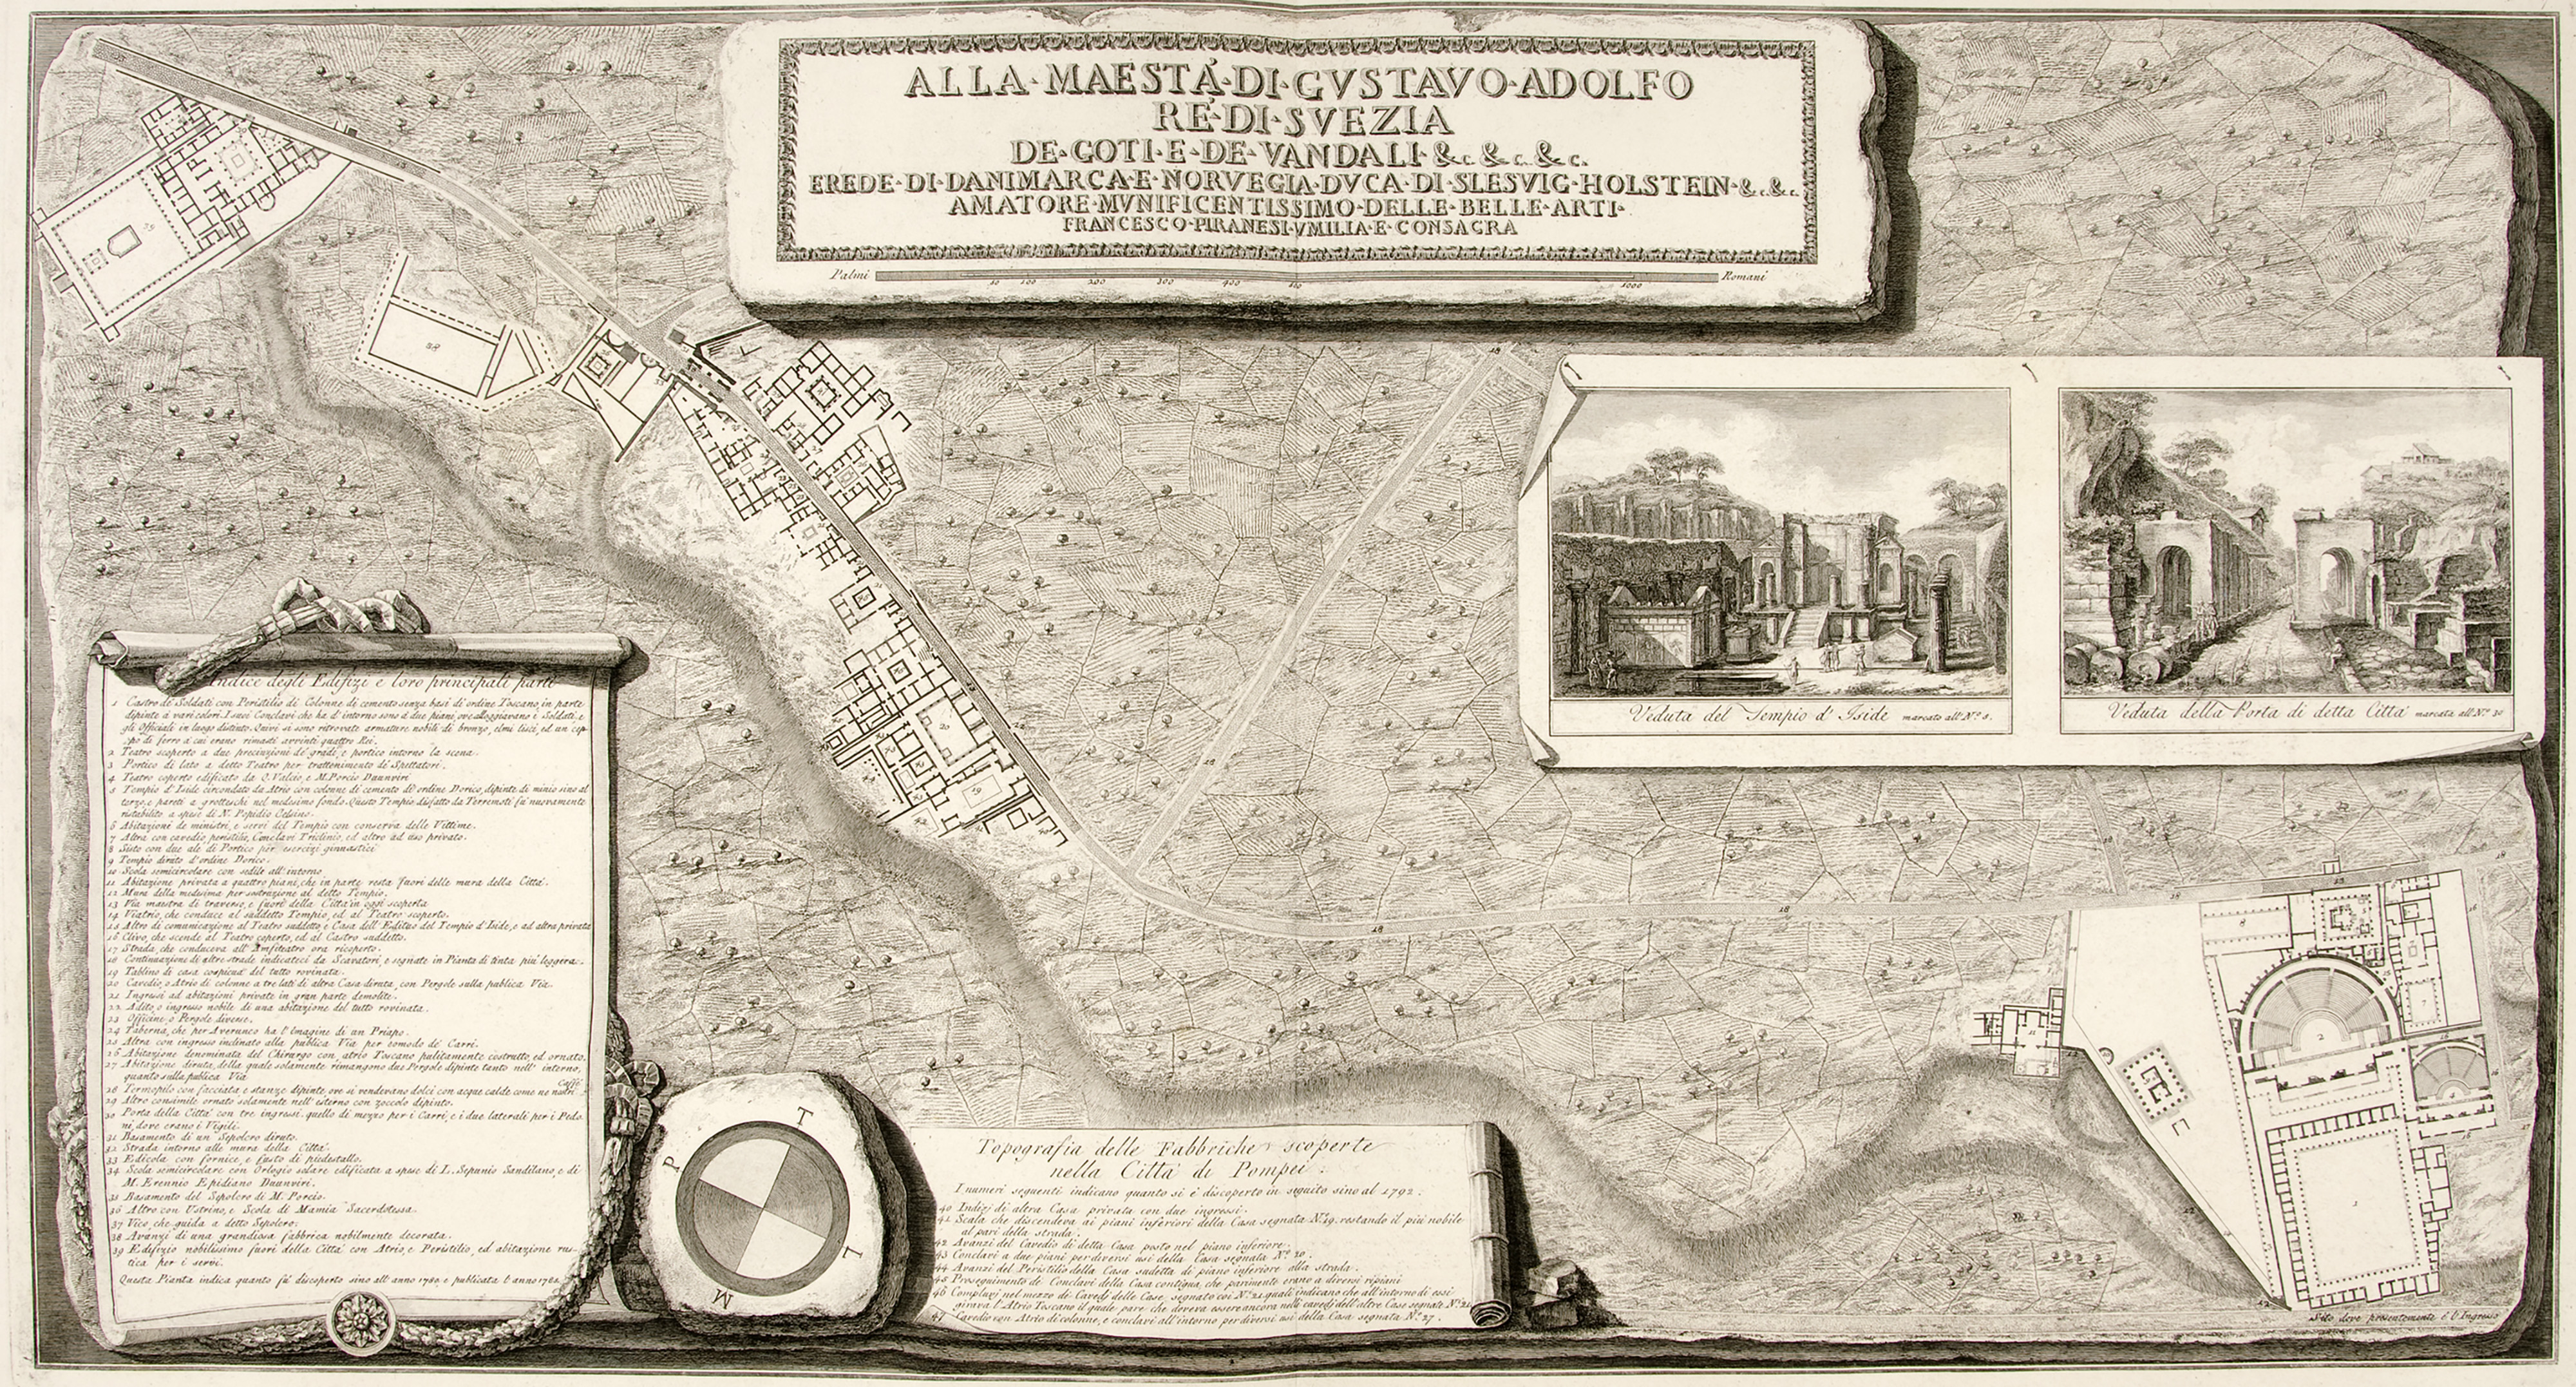 ALLA·MAESTÁ·DI·GVSTAVO·ADOLFO
RÉ·DI·SVEZIA
DE·GOTI·E·DE·VANDALI·&c. &c. &c.
EREDE·DI·DANIMARCA·E·NORVEGIA·DVCA·DI·SLESVIG·HOLSTEIN·&c.&c.
AMATORE·MVNIFICENTISSIMO·DELLE·BELLE·ARTI·
FRANCESCO·PIRANESI·VMILIA·E·CONSACRA
Palmi
Romani
10 100 200 300 400 1000
Veduta del Tempio d' Iside marcato all' N.º 5.
Veduta della Porta di detta Città marcata all' N.º 30
Indice degli Edifizi e loro principali parti
1 Castro de' Soldati con Peristilio di Colonne di cemento senza basi di ordine Toscano, in parte
dipinte à varj colori. I suoi Conclavi che ha d' intorno sono à due piani, ove alloggiavano i Soldati, e
gli Officiali in luogo distinto. Quivi si sono ritrovate armature nobili di bronzo, elmi lisci, ed un cep-
po di ferro à cui erano rimasti avvinti quattro Rei.
2 Teatro scoperto a due precinzioni de' gradi, e portico intorno la scena.
3 Portico di lato a detto Teatro per trattenimento di Spettatori.
4 Teatro coperto edificato da Q. Valcio, e M. Porcio Duunviri
5 Tempio d' Iside circondato da Atrio con colonne di cemento di ordine Dorico, dipinte di minio sino al
terzo, e pareti a grotteschi nel medesimo fondo. Questo Tempio disfatto da Terremoti fù nuovamente
ristabilito a spese di N. Popidio Celsino.
6 Abitazione de ministri, e servi del Tempio con conserva delle Vittime.
7 Altra con cavedio, peristilio, Conclavi Triclinio, ed altro ad uso privato.
8 Sisto con due ale di Portico per esercizi ginnastici
9 Tempio diruto d' ordine Dorico.
10 Scola semicircolare con sedile all' intorno
11 Abitazione privata a quattro piani, che in parte resta fuori delle mura della Città.
12 Mura della medesima per sostruzione al detto Tempio.
13 Via maestra di traverso, e fuori della Città in oggi scoperta
14 Viatrio, che conduce al suddetto Tempio, ed al Teatro scoperto.
15 Altro di comunicazione al Teatro suddetto, e Casa dell' Edituo del Tempio d' Iside, e ad altra privata
16 Clivo, che scende al Teatro coperto, ed al Castro suddetto.
17 Strada, che conduceva all' Amfiteatro ora ricoperto.
18 Continuazione di altre strade indicateci da Scavatori, e segnate in Pianta di tinta più leggera.
19 Tablino di casa cospicua del tutto rovinata.
20 Cavedio, o Atrio di colonne a tre lati di altra Casa diruta, con Pergole sulla publica Via.
21 Ingressi ad abitazioni private in gran parte demolite.
22 Adito, o ingresso nobile di una abitazione del tutto rovinata.
23 Officine o Pergole diverse.
24 Taberna, che per Averunco ha l' Imagine di un Priapo.
25 Altra con ingresso inclinato alla publica Via per comodo de' Carri.
26 Abitazione denominata del Chirurgo con atrio Toscano pulitamente costrutto, ed ornato.
27 Abitazione diruta, della quale solamente rimangono due Pergole dipinte tanto nell' interno,
quanto sulla publica Via
28 Termopilo con facciata e stanze dipinte, ove si vendevano dolci con acque calde come ne nostri Caffè
29 Altro consimile ornato solamente nell' esterno con zoccolo dipinto.
30 Porta della Città con tre ingressi, quello di mezzo per i Carri, e i due laterali per i Pedo-
ni, dove erano i Vigili.
31 Basamento di un Sepolcro diruto.
32 Strada intorno alle mura della Città.
33 Edicola con fornice, e fusto di piedestallo.
34 Scola semicircolare con Orlogio solare edificata a spese di L. Sepunio Sandilano, e di
M. Erennio Epidiano Duunviri.
35 Basamento del Sepolcro di M. Porcio.
36 Altro con Ustrino, e Scola di Mamia Sacerdotessa.
37 Vico, che guida a detto Sepolcro.
38 Avanzi di una grandiosa fabbrica nobilmente decorata.
39 Edifizio nobilissimo fuori della Città con Atrio, e Peristilio, ed abitazione rus-
tica per i servi.
Questa Pianta indica quanto fù discoperto sino all' anno 1789. e publicata l' anno
P
T
L
M
Topografia delle Fabbriche scoperte
nella Città di Pompei.
I numeri seguenti indicano quanto si è discoperto in seguito sino al 1792.
40 Indizj di altra Casa privata con due ingressi.
41 Scala che discendeva ai piani inferiori della Casa segnata N.º 19. restando il più nobile
al pari della strada.
42 Avanzi del Cavedio di detta Casa posto nel piano inferiore.
43 Conclavi a due piani per diversi usi della Casa segnata N.º 20.
44 Avanzi del Peristilio della Casa sudetta di piano inferiore alla strada.
45 Proseguimento de Conclavi della Casa contigua, che parimente erano a diversi ripiani
46 Compluvj nel mezzo de Cavedj delle Case, segnate coi N.º 21. quali indicano che all' intorno di essi
girava l' Atrio Toscano il quale pare che doveva esser ancora nelli cavedj dell' altre Case segnate N.º 21
47 Cavedio con Atrio di colonne, e conclavi all' intorno per diversi usi della Casa segnata N.º 27.
Sito dove presentemente è l' Ingresso